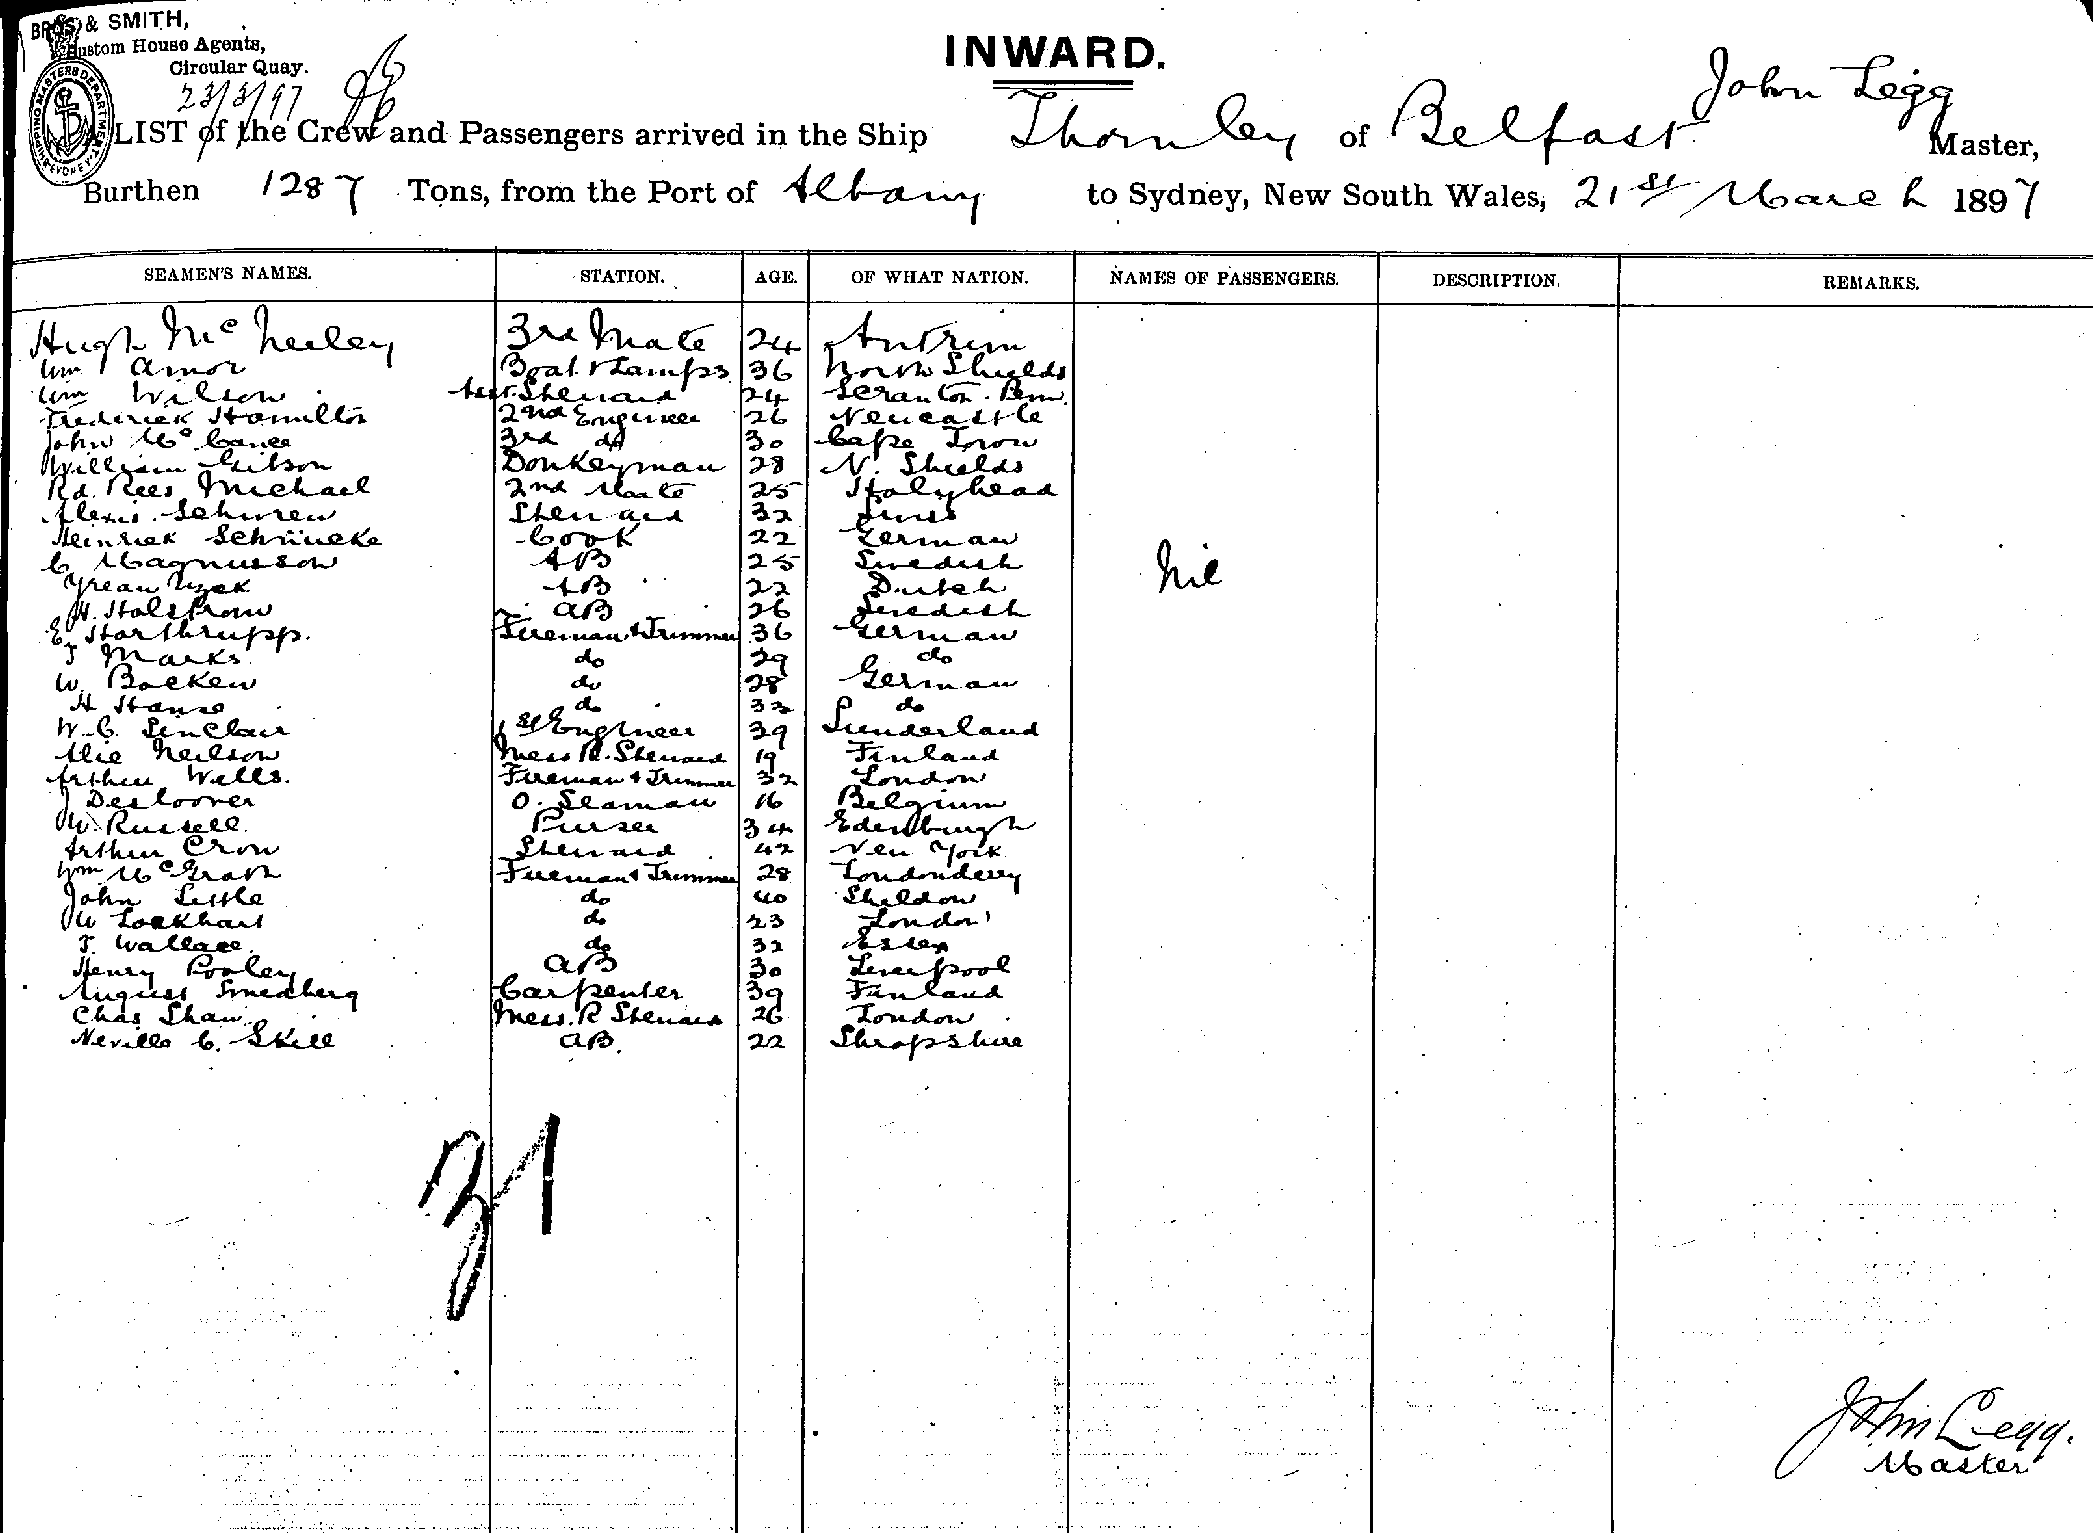 BROS & SMITH,
Custom House Agents,
Circular Quay.
23/3/97
INWARD.
John Legg
LIST of the Crew and Passengers arrived in the Ship Thornley of Belfast Master,
Burthen 1287 Tons, from the Port of Albany to Sydney, New South Wales, 21st March 1897
SEAMEN'S NAMES. STATION. AGE. OF WHAT NATION. NAMES OF PASSENGERS. DESCRIPTION. REMARKS.
Hugh McNeiley 3rd Mate 24 Antrim
Wm Amor Boat. & Lamps 36 North Shields
Wm Wilson Asst. Steward 24 Scranton. Penn.
Frederick Hamilton 2nd Engineer 26 Newcastle
John McCance 3rd do 30 Cape Town
William Gibson Donkeyman 28 N. Shields
Rd. Rees Michael 2nd Mate 25 Holyhead
Alexis. Steward 32 Swiss
Heinrick Schrincke Cook 22 German
C. Magnusson AB 25 Swedish
AB 22 Dutch
H. Holstrom AB 26 Swedish
E. Harthrupp. Fireman & Trimmer 36 German
T Marks do 29 do
W. Bocken do 28 German
H Hanse do 32 do
W. C. Sinclair 1st Engineer 39 Sunderland
Neilson Mess R. Steward 19 Finland
Arthur Wells. Fireman & Trimmer 32 London
J Desloover O. Seaman 16 Belgium
W. Russell Purser 34 Edenburgh
Arthur Crow Steward 42 New York
Wm McGrath Fireman & Trimmer 28 Londonderry
John Little do 40 Sheldon
W Lockhart do 23 London
T. Wallace. do 32 Essex
Henry Pooley AB 30 Liverpool
August Smedberg Carpenter 39 Finland
Chas Shaw Mess. R Steward 26 London
Neville C. Skill AB. 22 Shropshire
Nil
31
John Legg.
Master